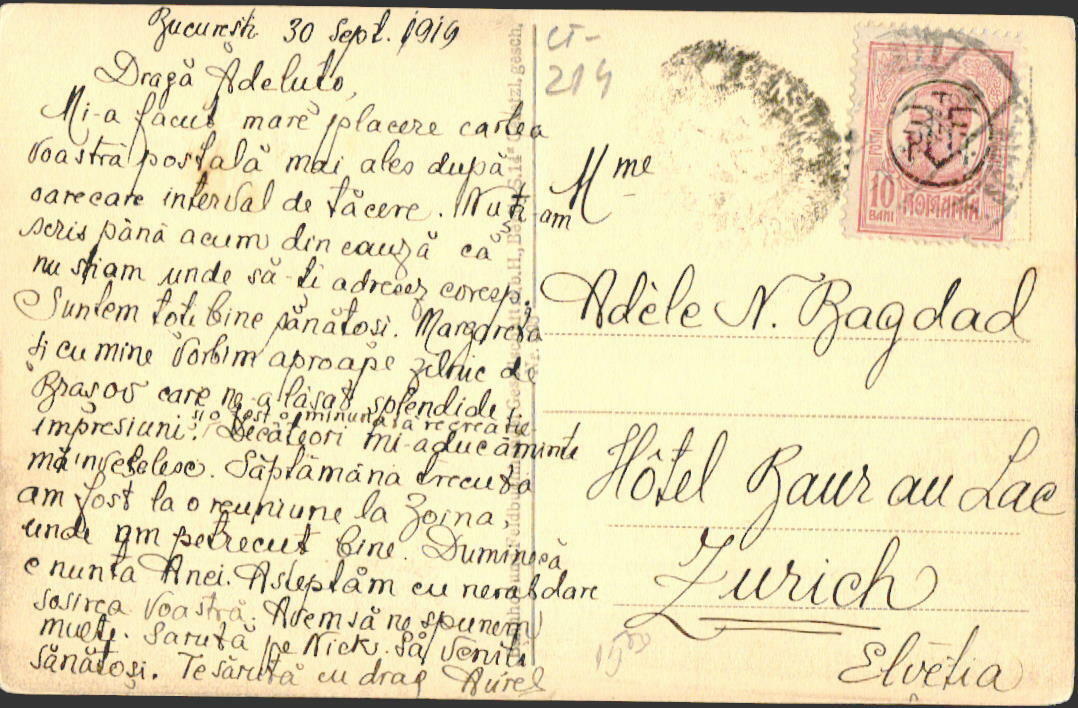 Bucuresti 30 Sept. 1919
Dragă Adeluto,
Mi-a făcut mare placere cartea
voastră postală mai ales după
oarecare interval de tăcere. Nu ti-am
scris până acum din cauză că
nu stiam unde să-ti adresez coresp.
Suntem toti bine sănătosi. Margareta
si cu mine vorbim aproape zilnic de
Brasov care ne-a lăsat splendide
impresiuni. si a fost o minunată recreatie
Decâteori mi-aduc aminte
mă 'nveselesc. Săptămâna trecută
am fost la o reuniune la Zoina,
unde am petrecut bine. Duminecă
e nunta Anei. Asteptăm cu nerabdare
sosirea voastră. Avem să ne spunem
multe. Sarută pe Nicki. Să veniti
sănătoşi. Te sărută cu drag Aurel
CT-
214
Mme
Adèle N. Bagdad
Hôtel Baur au Lac
Zurich
Elvetia
15
POSTA
10
BANI
ROMANIA